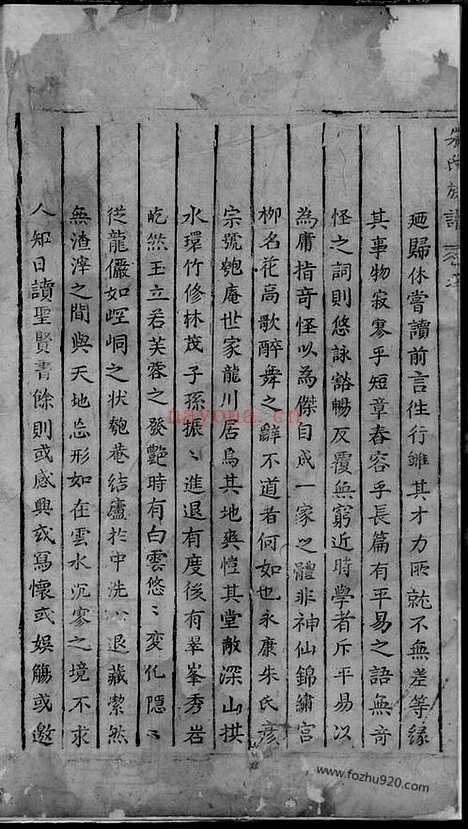 朱氏族譜
廼歸休嘗讀前言徃行雖其才力所就不無差等緣
其事物寂寥乎短章舂容乎長篇有平易之語無奇
怪之詞則悠詠豁暢反覆無窮近時學者斥平易以
為庸指奇怪以為傑目成一家之體非神仙錦繡宮
柳名花高歌醉舞之辭不道者何如也永康朱氏彦
宗號匏庵世家龍川居焉其地爽愷其堂敞深山拱
水環竹修林茂子孫振〻進退有度後有翠峯秀岩
屹然玉立若芙蓉之發艷時有白雲悠〻變化隱〻
從龍儼如崆峒之状匏菴結廬於中洗心退藏潔然
無渣滓之間與天地忘形如在雲水沉寥之境不求
人知日讀聖賢書餘則或感興或寫懷或娱觴或邀
nayona.cn
www.fozhu920.com